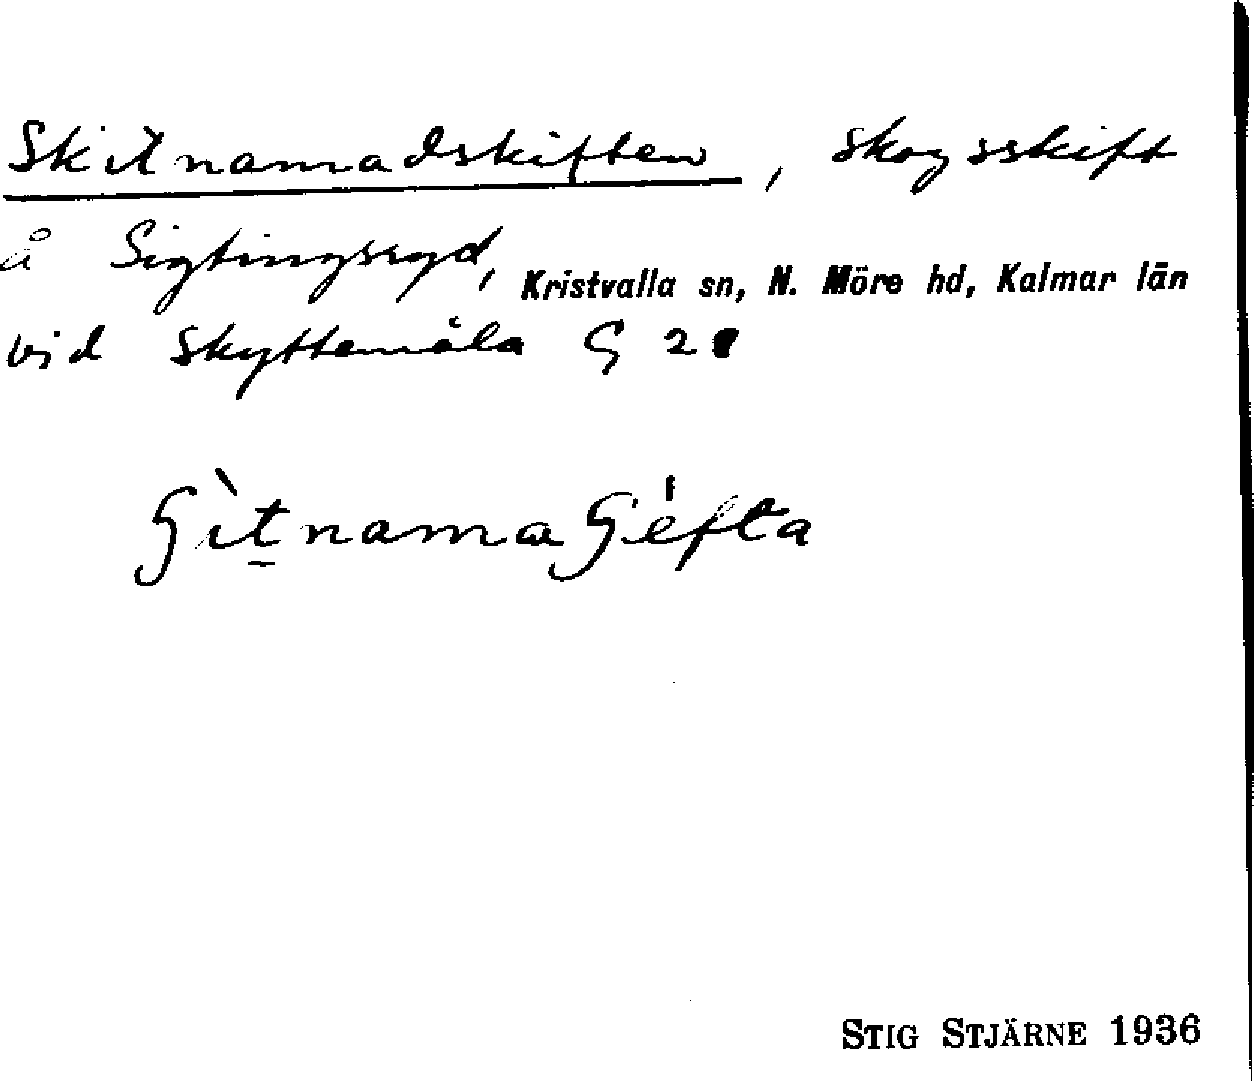 Skitnamadskiften, skogsskift
å Sigtingsryd, Kristvalla sn, N. Möre hd, Kalmar län
vid Skyttemåla G 2
STIG STJÄRNE 1936